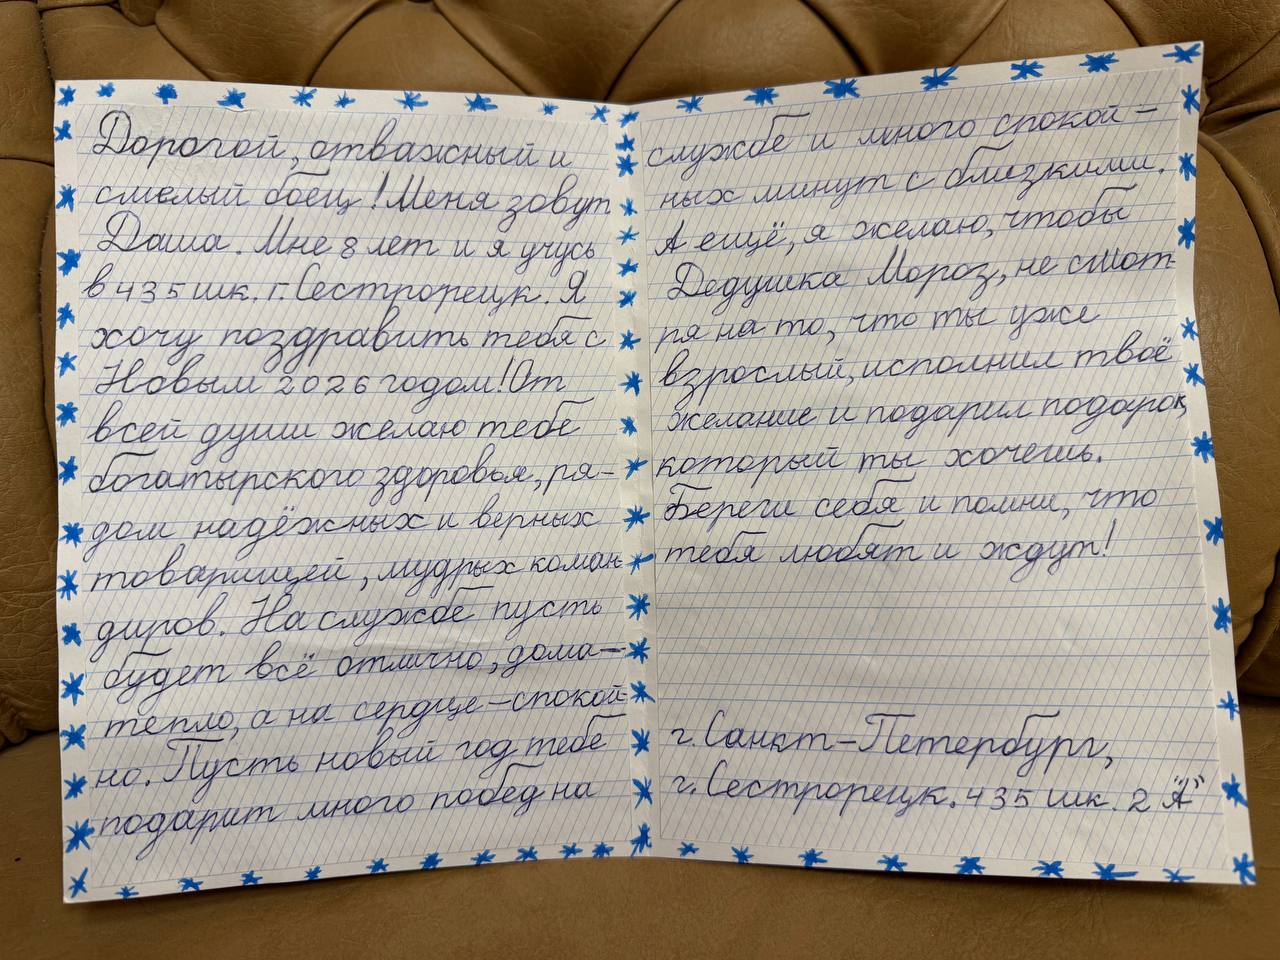 Дорогой, отважный и
смелый боец! Меня зовут
Даша. Мне 8 лет и я учусь
в 435 шк. г. Сестрорецк. Я
хочу поздравить тебя с
Новым 2026 годом! От
всей души желаю тебе
богатырского здоровья, ря-
дом надёжных и верных
товарищей, мудрых коман-
диров. На службе пусть
будет всё отлично, дома-
тепло, а на сердце - спокой-
но. Пусть новый год тебе
подарит много побед на
службе и много спокой-
ных минут с близкими.
А ещё, я желаю, чтобы
Дедушка Мороз, не смот-
ря на то, что ты уже
взрослый, исполнил твоё
желание и подарил подарок,
который ты хочешь.
Береги себя и помни, что
тебя любят и ждут!
г. Санкт-Петербург,
г. Сестрорецк. 435 шк. 2 "А"